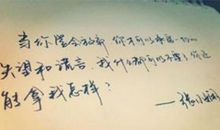 当你学会放弃 你不可以承受一切的
失望和谎言 我什么都可以不要了 你还
能拿我怎样？
——张小娴